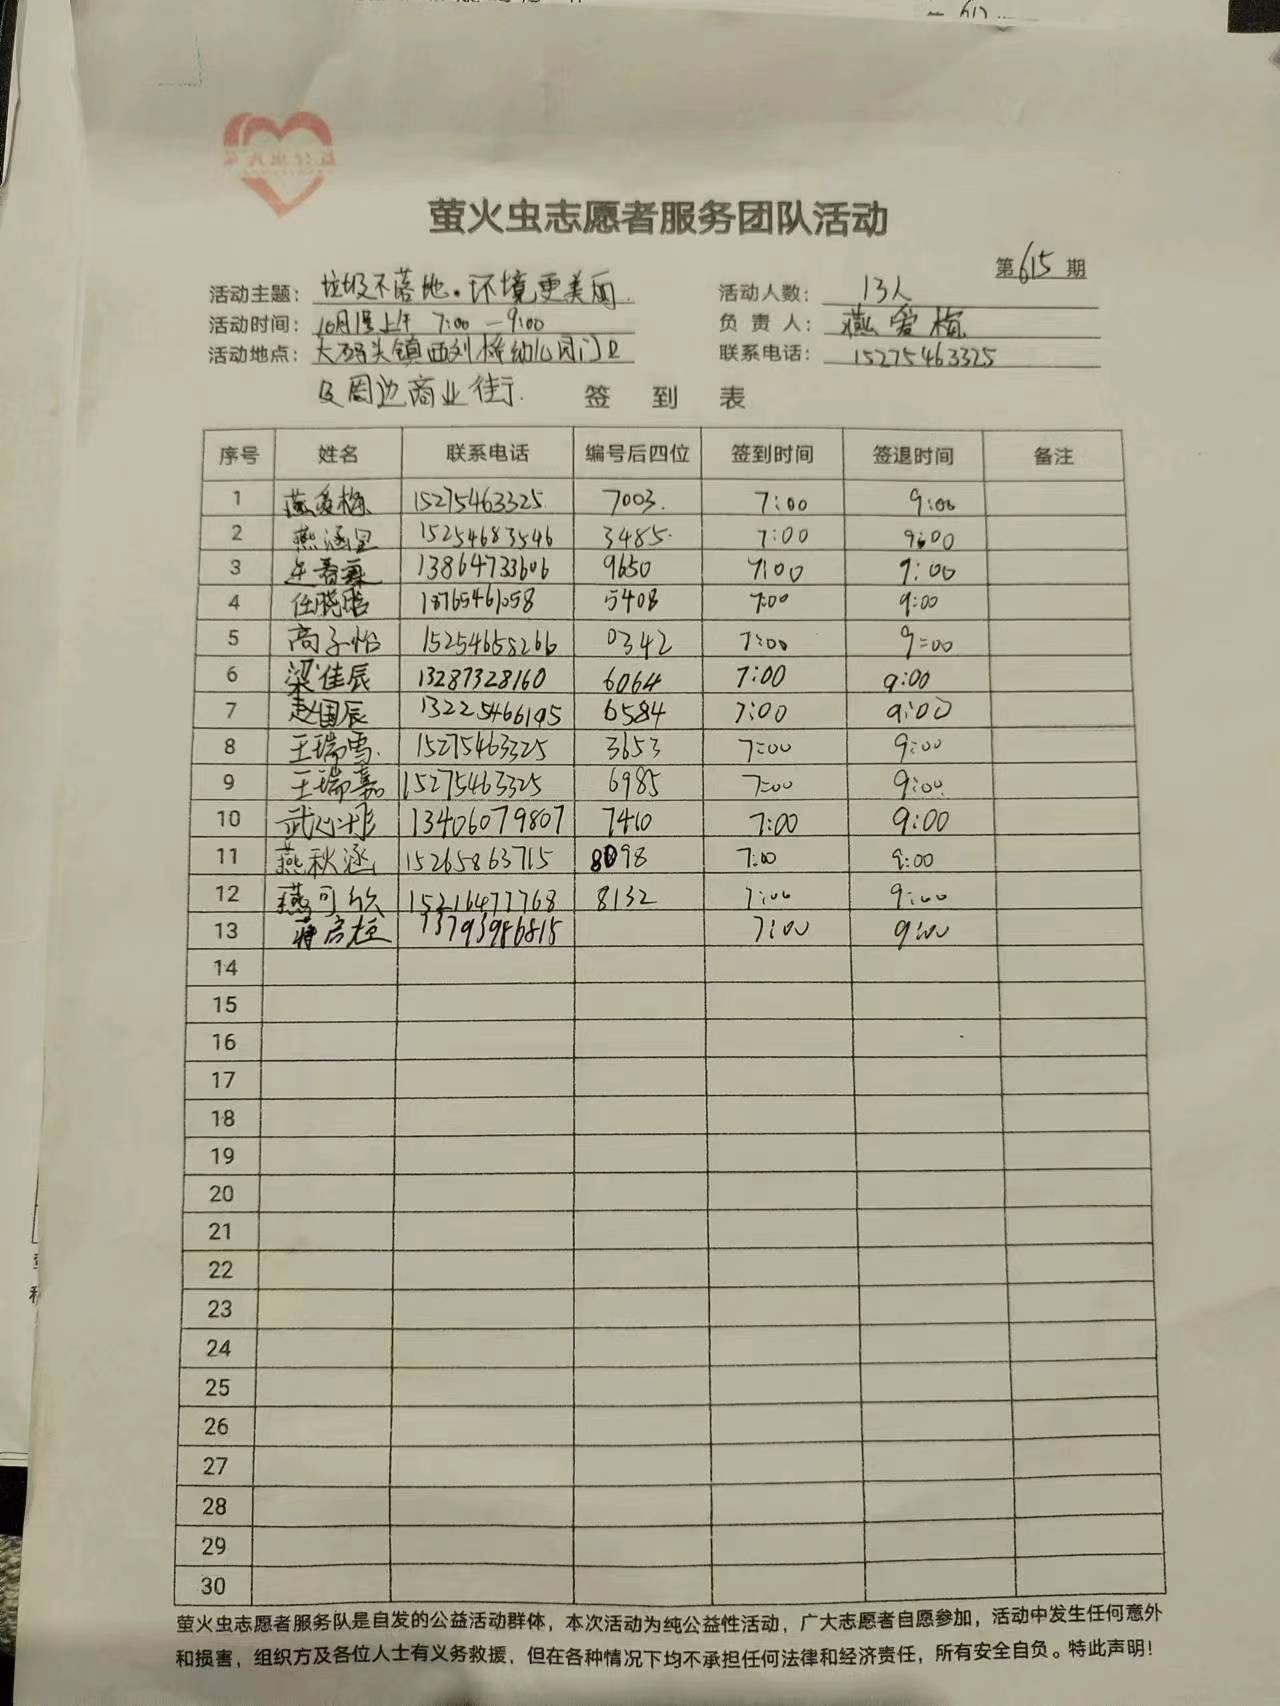 萤火虫志愿者服务团队活动
第615期
活动主题：垃圾不落地。环境更美丽 活动人数：13人
活动时间：10月1号上午 7:00—9:00 负责人：燕爱梅
活动地点：大码头镇西刘桥幼儿园门口 联系电话：15275463325
及周边商业街. 签到表
序号 姓名 联系电话 编号后四位 签到时间 签退时间 备注
1 燕爱梅 15275463325 7003. 7:00 9:00
2 燕涵 15254683546 3485. 7:00 9:00
3 13864733606 9650 7:00 9:00
4 任晓 18765461058 5408 7:00 9:00
5 高子怡 15254658266 0342 7:00 9:00
6 梁佳辰 13287328160 6064 7:00 9:00
7 赵国辰 13225466195 6584 7:00 9:00
8 王瑞雪. 15275463325 3653 7:00 9:00
9 王瑞嘉 15275463325 6985 7:00 9:00
10 武心彤 13406079807 7410 7:00 9:00
11 燕秋涵 15265863715 8098 7:00 9:00
12 燕可欣 15216477768 8132 7:00 9:00
13 蒋启 13793986815 7:00 9:00
14
15
16
17
18
19
20
21
22
23
24
25
26
27
28
29
30
萤火虫志愿者服务队是自发的公益活动群体，本次活动为纯公益性活动，广大志愿者自愿参加，活动中发生任何意外
和损害，组织方及各位人士有义务救援，但在各种情况下均不承担任何法律和经济责任，所有安全自负。特此声明！